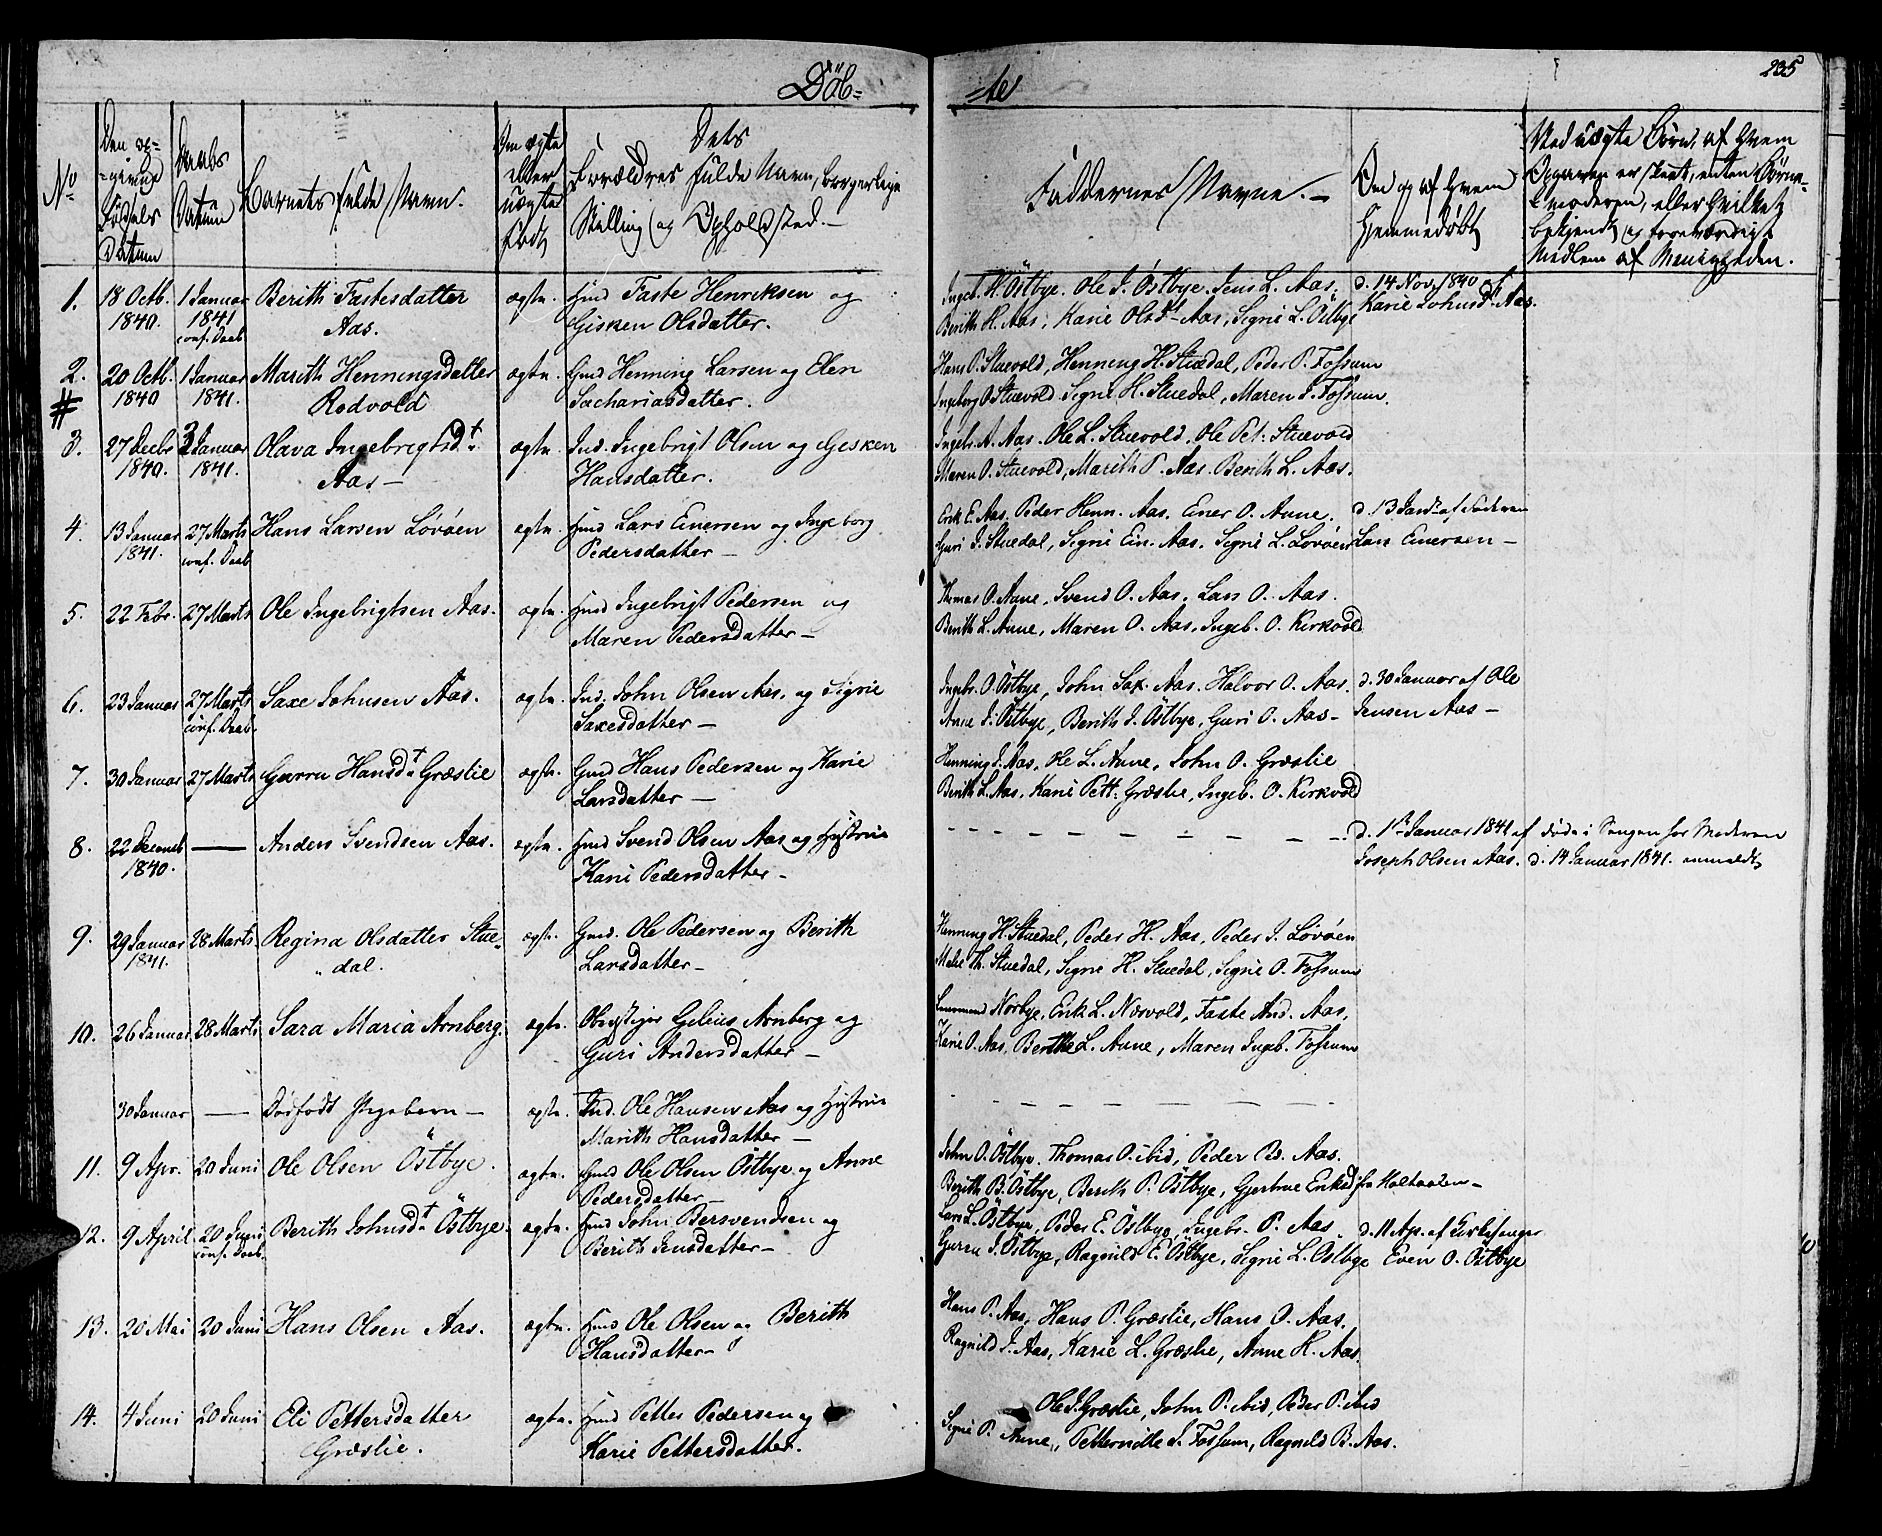 Döb=
=te
235
No
Den op-
=givne
Födsels
Datum
Daabs
Datum
Barnets fulde Navn.
Om ægte
eller
uægte
Født
Dets
Forældres fulde Navn, borgerlige
Stilling og Opholdsted.
Faddernes Navne.
Om og af hvem
Hjemmedøbt
Ved uægte Børn, af hvem
Opgaven er skeet, enten Børne-
moderen, eller hvilket
bekjendt og troværdigt
Medlem af Menigheden.
1. 18 Octb. 1840. 1 Januar 1841 conf. Daab Berith Fastesdatter Aas. ægte. Hmd Faste Henriksen og
Gisken Olsdatter.
Ingeb. H. Östbye. Ole J. Östbye. Jens L. Aas.
Berith H. Aas, Karie Olsdt Aas, Signe L. Östbye
d. 14 Nov. 1840 af
Karie Johnsdt Aas.
2. 20 Octb. 1840 1 Januar 1841. Marith Henningsdatter Rodvold ægte. Gmd Henning Larsen og Elen
Sachariasdatter.
Hans P. Stuevold, Henning H. Stuedal, Peder P. Fossum
Ingeborg O. Stuevold Signe H. Stuedal, Maren J. Fossum.
#
3. 27 Decbr 1840. 3 Januar 1841. Olava Ingebrigtsdt Aas ægte. Ind. Ingebrigt Olsen og Gisken
Hansdatter.
Ingebr. A. Aas. Ole L. Stuevold, Ole Pet. Stuevold
Maren O. Stuevold, Marith P. Aas. Berith L. Aas.
4. 13 Januar 1841. 27 Marts conf. Daab Hans Larsen Lövöen ægte. Hmd Lars Einersen og Ingeborg
Pedersdatter
Erik E. Aas. Peder Henn. Aas. Einer O. Aune.
Guri J. Stuedal, Signe Ein. Aas. Signe L. Lövöen
d. 13 Jan. af Faderen
Lars Einersen
5. 22 Febr. 27 Marts Ole Ingebrigtsen Aas. ægte. Hmd Ingebrigt Pedersen og
Maren Pedersdatter
Thomas O. Aune, Svend O. Aas, Lars O. Aas.
Berith L. Aune, Maren O. Aas, Ingeb. O. Kirkvold
6. 23 Januar 27 Marts conf. Daab. Saxe Johnsen Aas. ægte. Ind. John Olsen Aas, og Sigrie
Saxesdatter
Ingebr. O. Östbye, John Sax. Aas. Halvor O. Aas.
Anne J. Östbye, Berith J. Östbye, Guri O. Aas
d. 30 Januar af Ole
Jensen Aas
7. 30 Januar 27 Marts Gurru Hansdt Græslie ægte. Gmd Hans Pedersen og Karie
Larsdatter
Henning J. Aas, Ole L. Aune, John O. Græslie
Berith L. Aas, Kari Pett. Græslie, Ingeb. O. Kirkvold
8. 22 Decemb 1840. Anders Svendsen Aas. ægte. Hmd Svend Olsen Aas og Hustrue
Kari Pedersdatter
d. 1ste Januar 1841 af
Joseph Olsen Aas.
døde i Sengen hos Moderen
d. 14 Januar 1841. anmeldt
9. 29 Januar 1841. 28 Marts. Regina Olsdatter Stuedal. ægte. Gmd. Ole Pedersen og Berith
Larsdatter
Henning H. Stuedal, Peder H. Aas, Peder J. Lövöen
Malie Th. Stuedal, Signe H. Stuedal, Signe O. Fossum
10. 26 Januar 28 Marts Sara Maria Arnberg. ægte. Gelius Arnberg og
Guri Andersdatter
Norbye, Erik L. Næsvold, Faste And. Aas,
Karie O. Aas, Berithe L. Aune, Maren Ingeb. Fossum
30 Januar Dødfødt Pigebarn ægte. Ind. Ole Hansen Aas og Hustrue
Marith Hansdatter
11. 9 Apr. 20 Juni Ole Olsen Östbye. ægte. Gmd Ole Olsen Östbye og Anne
Pedersdatter
John O. Östbye. Thomas O. ibid, Peder Bd. Aas.
Berith B. Östbye, Berith P. Östbye, Gjertrue Eriksd fra Holtaalen
12. 9 April 20 Juni conf. Daab Berith Johnsdt Östbye. ægte. Hmd John Bersvendsen og
Berith Jensdatter
Lars L. Östbye, Peder E. Östbye, Ingebr. P. Aas
Gurru J. Östbye, Ragnild E. Östbye, Signe L. Östbye
d. 11 Apr. af Kirkesanger
Even O. Östbye
13. 20 Mai 20 Juni Hans Olsen Aas. ægte. Hmd Ole Olsen og Berith
Hansdatter
Hans P. Aas, Hans P. Græslie, Hans O. Aas.
Ragnild J. Aas, Karie L. Græslie, Anne H. Aas.
14. 4 Juni 20 Juni Eli Pettersdatter Græslie. ægte. Hmd Petter Pedersen og
Karie Pettersdatter.
Ole J. Græslie, John P. ibid, Peder P. ibid
Signe P. Aune, Petternille J. Fossum, Ragnild B. Aas.